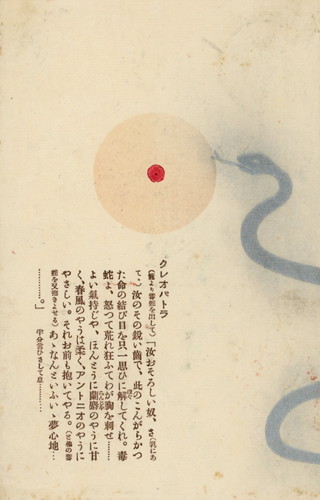 クレオパトラ
(籠より毒蛇を出して)「汝おそろしい奴、さ(乳にあ
てゝ)汝のその鋭い齒で、此のこんがらかつ
た命の結び目を只一思ひに解してくれ。毒
蛇よ、怒つて荒れ狂ふてわが胸を刺せ………
よい氣持じや、ほんとうに蘭麝のやうに甘
く、春風のやうは柔く、アントニオのやうに
やさしい。それお前も抱いてやる。(と他の毒
蛇を抱きよせる)あゝなんといふいゝ夢心地…
…………。」 半分言ひさして息………